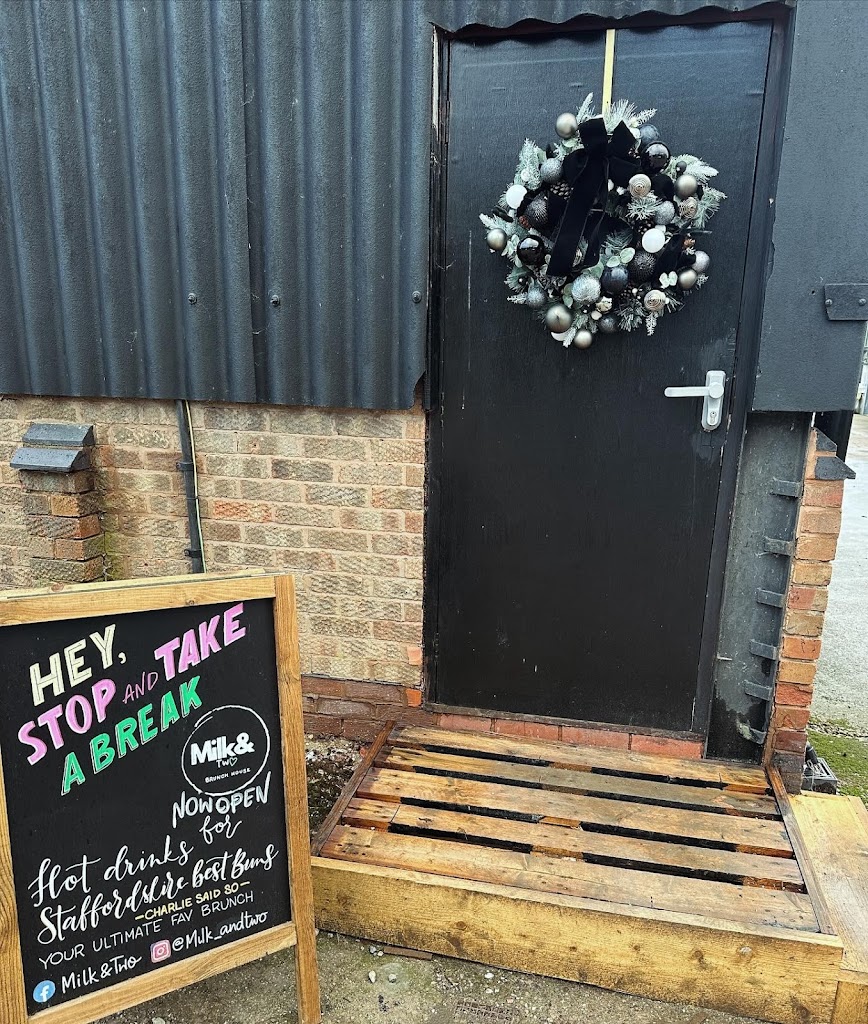 HEY,
STOP AND TAKE
A BREAK
Milk&
TWO
BRUNCH HOUSE
NOW OPEN
for
Hot drinks
Staffordshire best Buns
-CHARLIE SAID SO-
YOUR ULTIMATE FAV BRUNCH
Milk&Two @Milk_andtwo